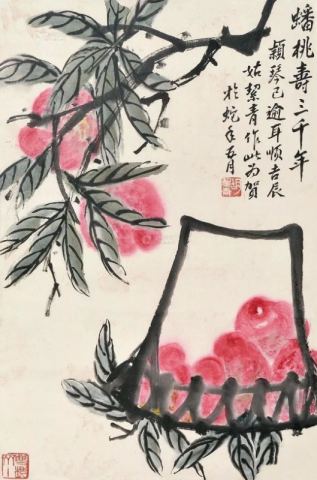 蟠桃壽三千年
穎琴已逾耳順吉辰
姑絜青作此为賀
於蛇年五月